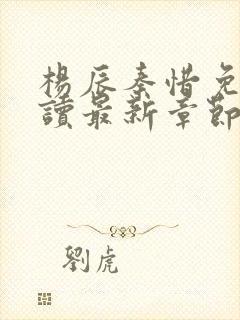 楊辰秦惜免
讀最新章節
劉虎